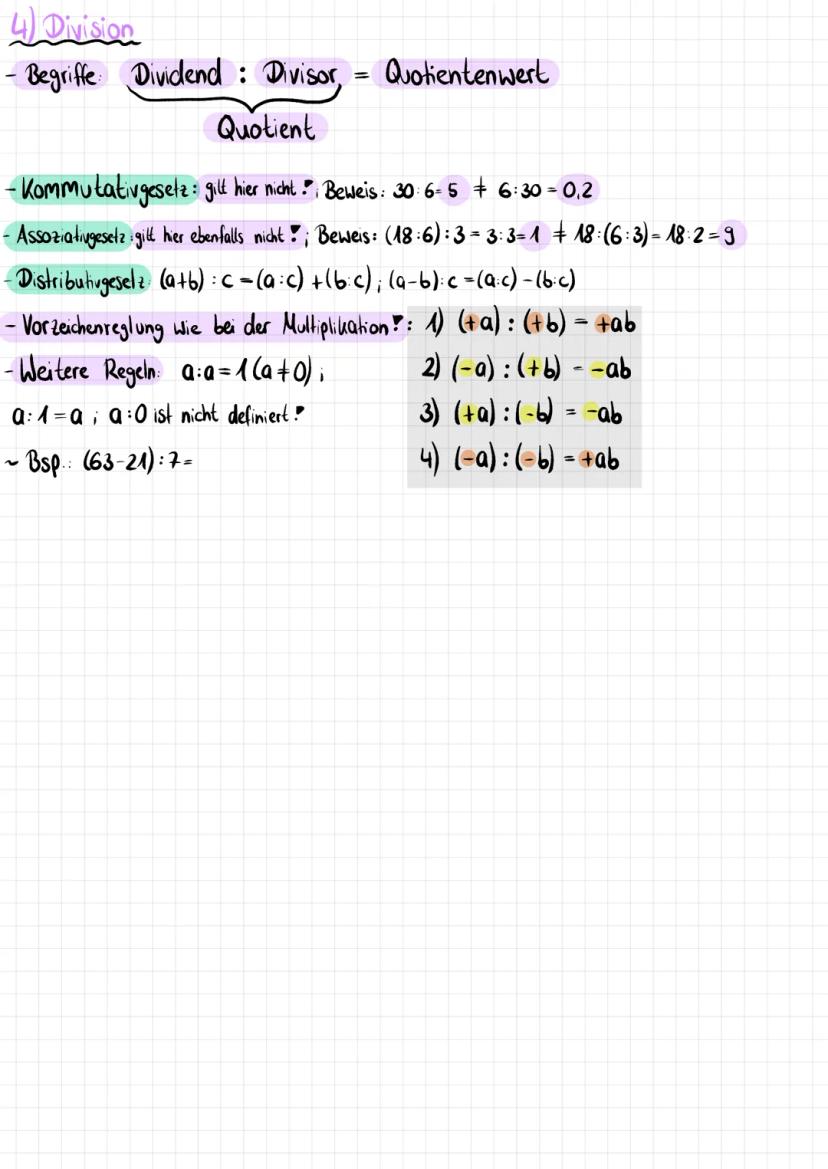 4) Division
- Begriffe: Dividend : Divisor = Quotientenwert
Quotient
- Kommutativgesetz: gilt hier nicht!; Beweis: 30:6=5 ≠ 6:30=0,2
- Assoziativgesetz: gilt hier ebenfalls nicht!; Beweis: (18:6):3=3:3=1 ≠ 18:(6:3)=18:2=9
- Distributivgesetz: (a+b):c=(a:c)+(b:c); (a-b):c=(a:c)-(b:c)
- Vorzeichenreglung wie bei der Multiplikation!: 1) (+a):(+b)=+ab
2) (-a):(+b)=-ab
3) (+a):(-b)=-ab
4) (-a):(-b)=+ab
- Weitere Regeln: a:a=1(a≠0);
a:1=a; a:0 ist nicht definiert!
~ Bsp.: (63-21):7=